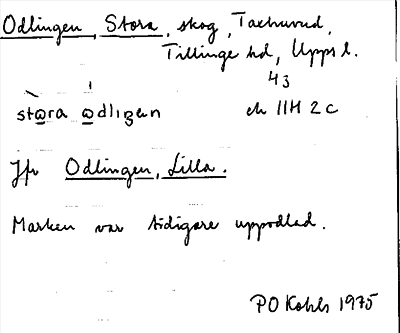 Odlingen, Stora, skog, Taxhuvud,
Tillinge hd, Upps l.
43
stωra ωdligen ek 11H 2c
Jfr Odlingen, Lilla.
Marken var tidigare uppodlad.
PO Kohls 1975